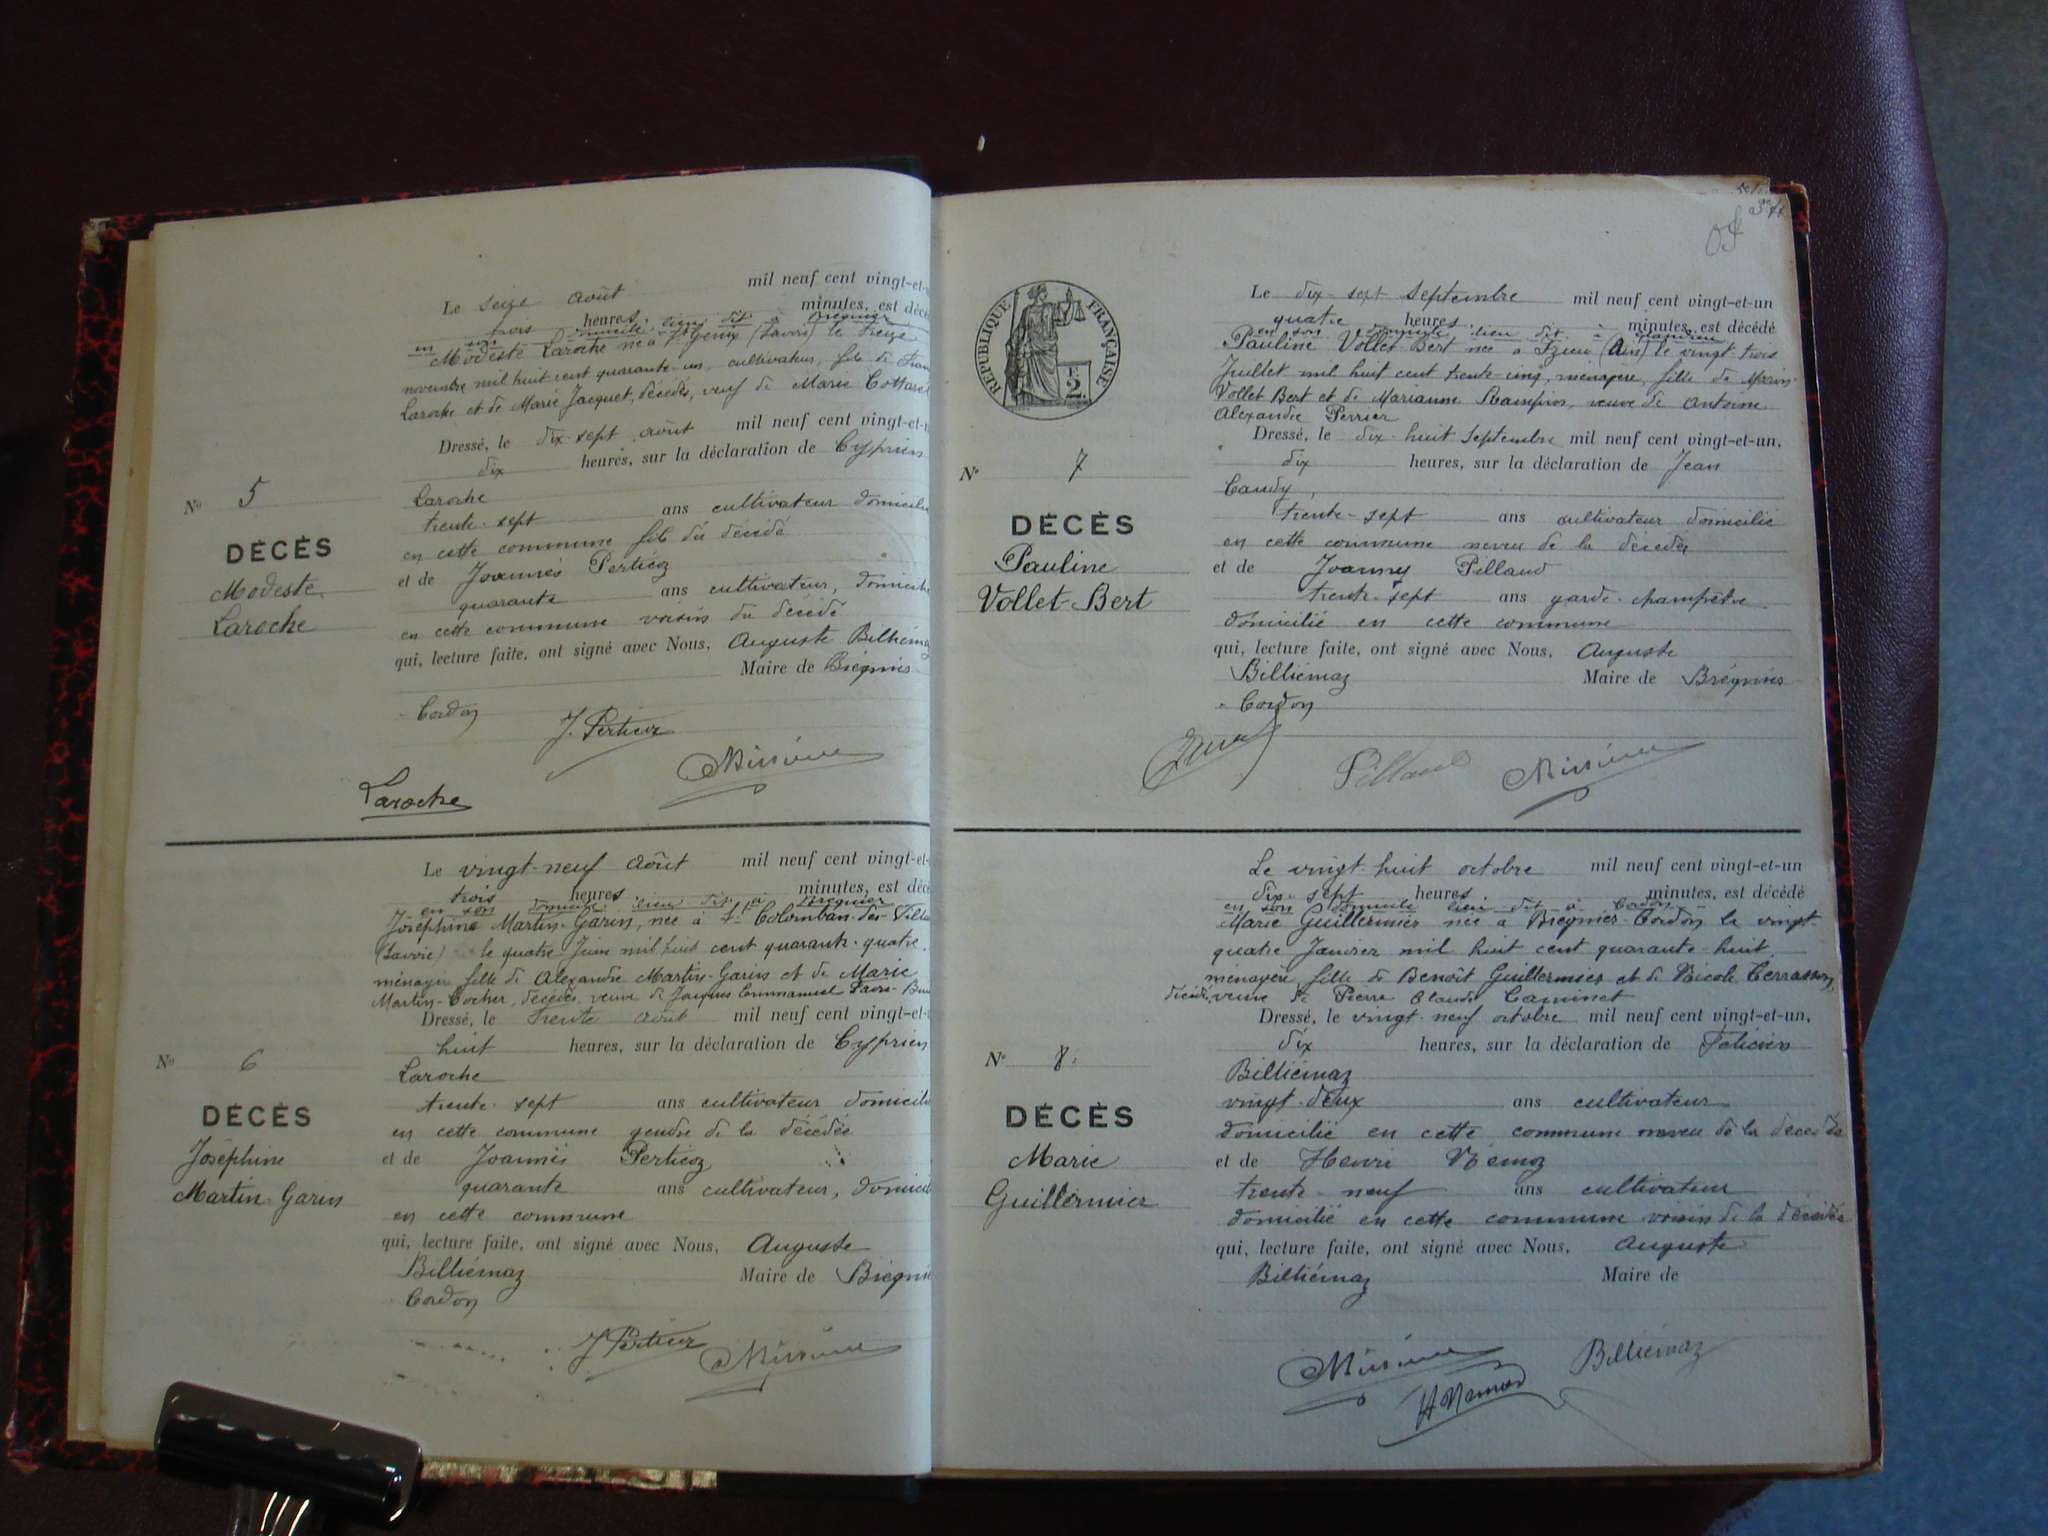 Le seize août mil neuf cent vingt-et-
trois heures minutes, est décé
en son domicile lieu dit à Brégnier
Modeste Laroche né à St Genix (Savoie) le treize
novembre mil huit cent quarante-un, cultivateur, fils de
Laroche et de Marie Jacquet, décédés, veuf de Marie
Dressé, le dix-sept août mil neuf cent vingt-et-
dix heures, sur la déclaration de Cyprien
Laroche
trente-sept ans cultivateur domicilié
en cette commune fils du décédé
et de Joannès Perticoz
quarante ans cultivateur, domicilié
en cette commune voisin du décédé
qui, lecture faite, ont signé avec Nous, Auguste Billiémaz
Maire de Brégnier-
Cordon
J. Perticoz
Laroche
No 5
DÉCÈS
Modeste
Laroche
Le vingt-neuf août mil neuf cent vingt-et-
trois heures minutes, est décé
en son domicile lieu dit à Brégnier
Joséphine Martin-Garin, née à St Colomban-des-Villa
(Savoie) le quatre Juin mil huit cent quarante-quatre,
ménagère fille de Alexandre Martin-Garin et de Marie
Martin-Cocher, décédés, veuve de Jacques Emmanuel
Dressé, le trente août mil neuf cent vingt-et-
huit heures, sur la déclaration de Cyprien
Laroche
trente-sept ans cultivateur domicilié
en cette commune gendre de la décédée
et de Joannès Perticoz
quarante ans cultivateur, domicil
en cette commune
qui, lecture faite, ont signé avec Nous, Auguste
Billiémaz Maire de Brégnie
Cordon
J Perticoz
No 6
DÉCÈS
Joséphine
Martin-Garin
RÉPUBLIQUE FRANÇAISE
2
Le dix-sept septembre mil neuf cent vingt-et-un
quatre heures minutes, est décédé
en son domicile lieu dit à
Pauline Vollet-Bert née à Izieu (Ain) le vingt trois
Juillet mil huit cent trente-cinq, ménagère, fille de Marin
Vollet Bert et de Marianne veuve de Antoine
Alexandre Perrier
Dressé, le dix-huit septembre mil neuf cent vingt-et-un,
dix heures, sur la déclaration de Jean
Caudy,
trente-sept ans cultivateur domicilié
en cette commune neveu de la décédée
et de Joanny Pillaud
trente-sept ans garde-champêtre
domicilié en cette commune
qui, lecture faite, ont signé avec Nous, Auguste
Billiémaz Maire de Brégnier
-Cordon
Pillaud
No 7
DÉCÈS
Pauline
Vollet-Bert
Le vingt-huit octobre mil neuf cent vingt-et-un
dix-sept heures minutes, est décédé
en son domicile lieu dit à Cordon
Marie Guillermier née à Brégnier-Cordon le vingt-
quatre Janvier mil huit cent quarante-huit
ménagère, fille de Benoît Guillermier et de Nicole Terrasson,
décédés, veuve de Pierre Claude Caminet
Dressé, le vingt-neuf octobre mil neuf cent vingt-et-un,
dix heures, sur la déclaration de Félicien
Billiémaz
vingt-deux ans cultivateur
domicilié en cette commune neveu de la décédée
et de Henri Némoz
trente-neuf ans cultivateur
domicilié en cette commune voisin de la décédée
qui, lecture faite, ont signé avec Nous, Auguste
Billiémaz Maire de
Billiémaz
H Némoz
No 8
DÉCÈS
Marie
Guillermier